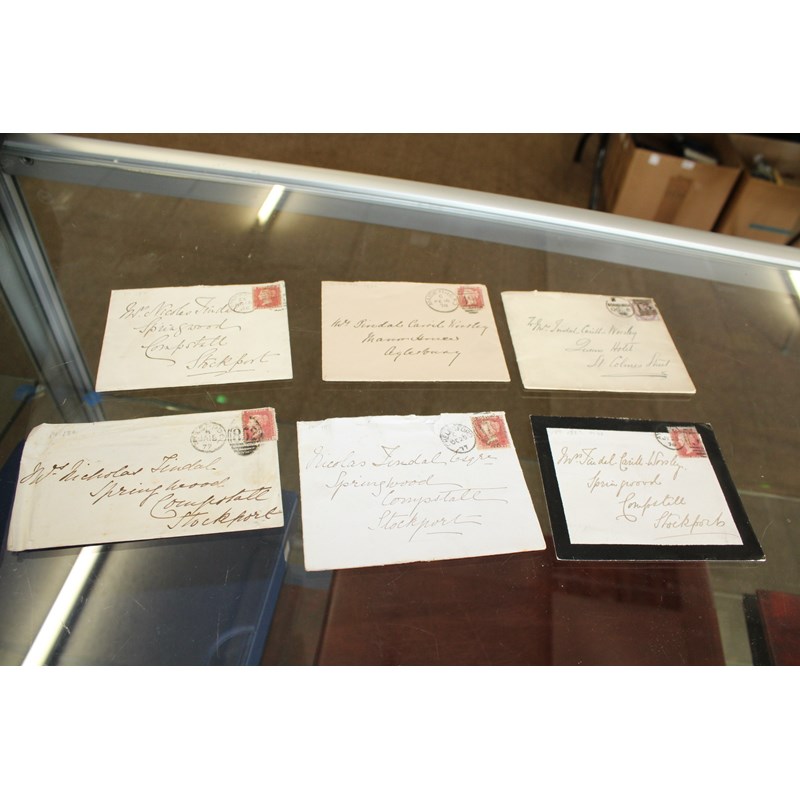 Mrs Nicolas Tindal
Springwood
Compstall
Stockport
Mrs Tindal Carill Worsley
Manor House
Aylesbury
To Mrs Tindal Carill Worsley
Hotel
Mrs Nicholas Tindal
Springwood
Compstall
Stockport
Nicolas Tindal Esqre
Springwood
Compstall
Stockport
Mrs Tindal Carill Worsley
Springwood
Compstall
Stockport